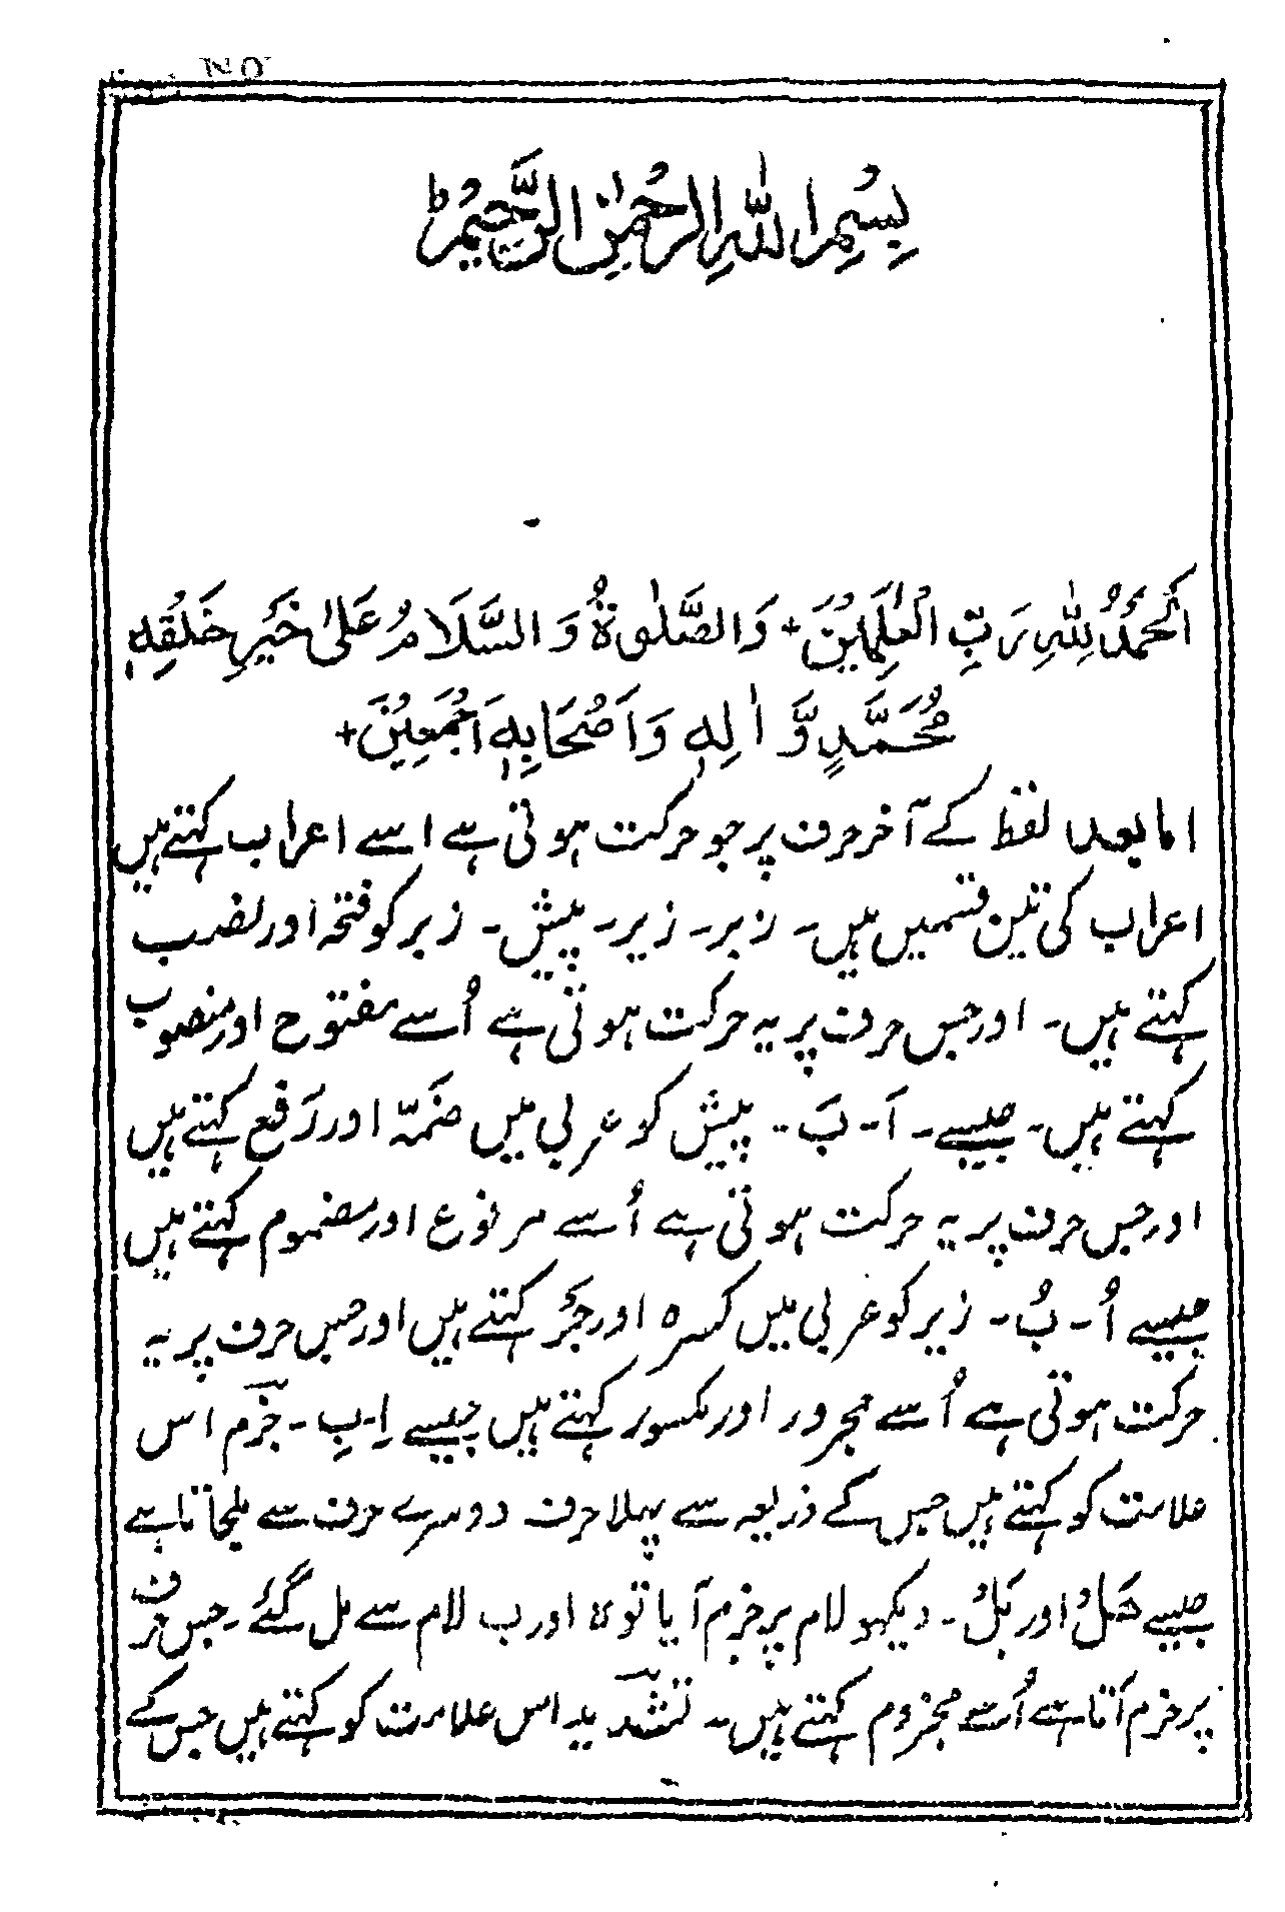 No
بِسْمِ اللّٰهِ الرَّحْمٰنِ الرَّحِيْمِ ط
اَلْحَمْدُ لِلّٰهِ رَبِّ الْعٰلَمِيْنَ + وَالصَّلٰوةُ وَالسَّلَامُ عَلٰى خَيْرِ خَلْقِهٖ
مُحَمَّدٍ وَّ اٰلِهٖ وَاَصْحَابِهٖ اَجْمَعِيْنَ +
اما بعد لفظ کے آخر حرف پر جو حرکت ہوتی ہے اسے اعراب کہتے ہیں
اعراب کی تین قسمیں ہیں۔ زبر۔ زیر۔ پیش۔ زبر کو فتحہ اور نصب
کہتے ہیں۔ اور جس حرف پر یہ حرکت ہوتی ہے اُسے مفتوح اور منصوب
کہتے ہیں۔ جیسے۔ اَ۔ بَ۔ پیش کو عربی میں ضَمّہ اور رَفع کہتے ہیں
اور جس حرف پر یہ حرکت ہوتی ہے اُسے مرفوع اور مضموم کہتے ہیں
جیسے اُ۔ بُ۔ زیر کو عربی میں کسرہ اور جَر کہتے ہیں اور جس حرف پر یہ
حرکت ہوتی ہے اُسے مجرور اور مکسور کہتے ہیں جیسے اِ۔ بِ۔ جزم اس
علامت کو کہتے ہیں جس کے ذریعہ سے پہلا حرف دوسرے حرف سے ملجاتا ہے
جیسے ھَلْ اور بَلْ۔ دیکھو لام پر جزم آیا تو ہ اور ب لام سے مل گئے۔ جس حرف
پر جزم آتا ہے اُسے مجزوم کہتے ہیں۔ تشدید اس علامت کو کہتے ہیں جس کے